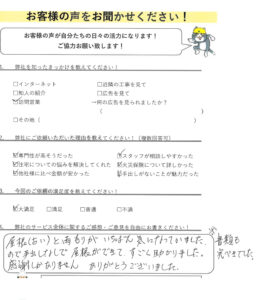 お客様の声をお聞かせください！
お客様の声が自分たちの日々の活力になります！
ご協力お願い致します！
1. 弊社を知ったきっかけを教えてください！
□インターネット □近隣の工事を見て
□知人の紹介 □広告を見て
☑訪問営業 →何の広告を見られましたか？
( )
□その他（ ）
2. 弊社にご依頼いただいた理由を教えてください！（複数回答可）
☑専門性が高そうだった ☑スタッフが相談しやすかった
☑住宅についての悩みを解決してくれた ☑火災保険について詳しかった
☑他社様に比べ金額が安かった ☑手出しがないことが魅力だった
3. 今回のご依頼の満足度を教えてください！
☑大満足 □満足 □普通 □不満
4. 弊社のサービス全体に関するご感想・ご意見を自由にお書きください！
屋根(とい)と雨もりがいちばん気になっていました。
ので手出しなしで屋根ができて、すごく助かりました。
感謝しかありません ありがとうございました。
書類も
完ぺきでした。